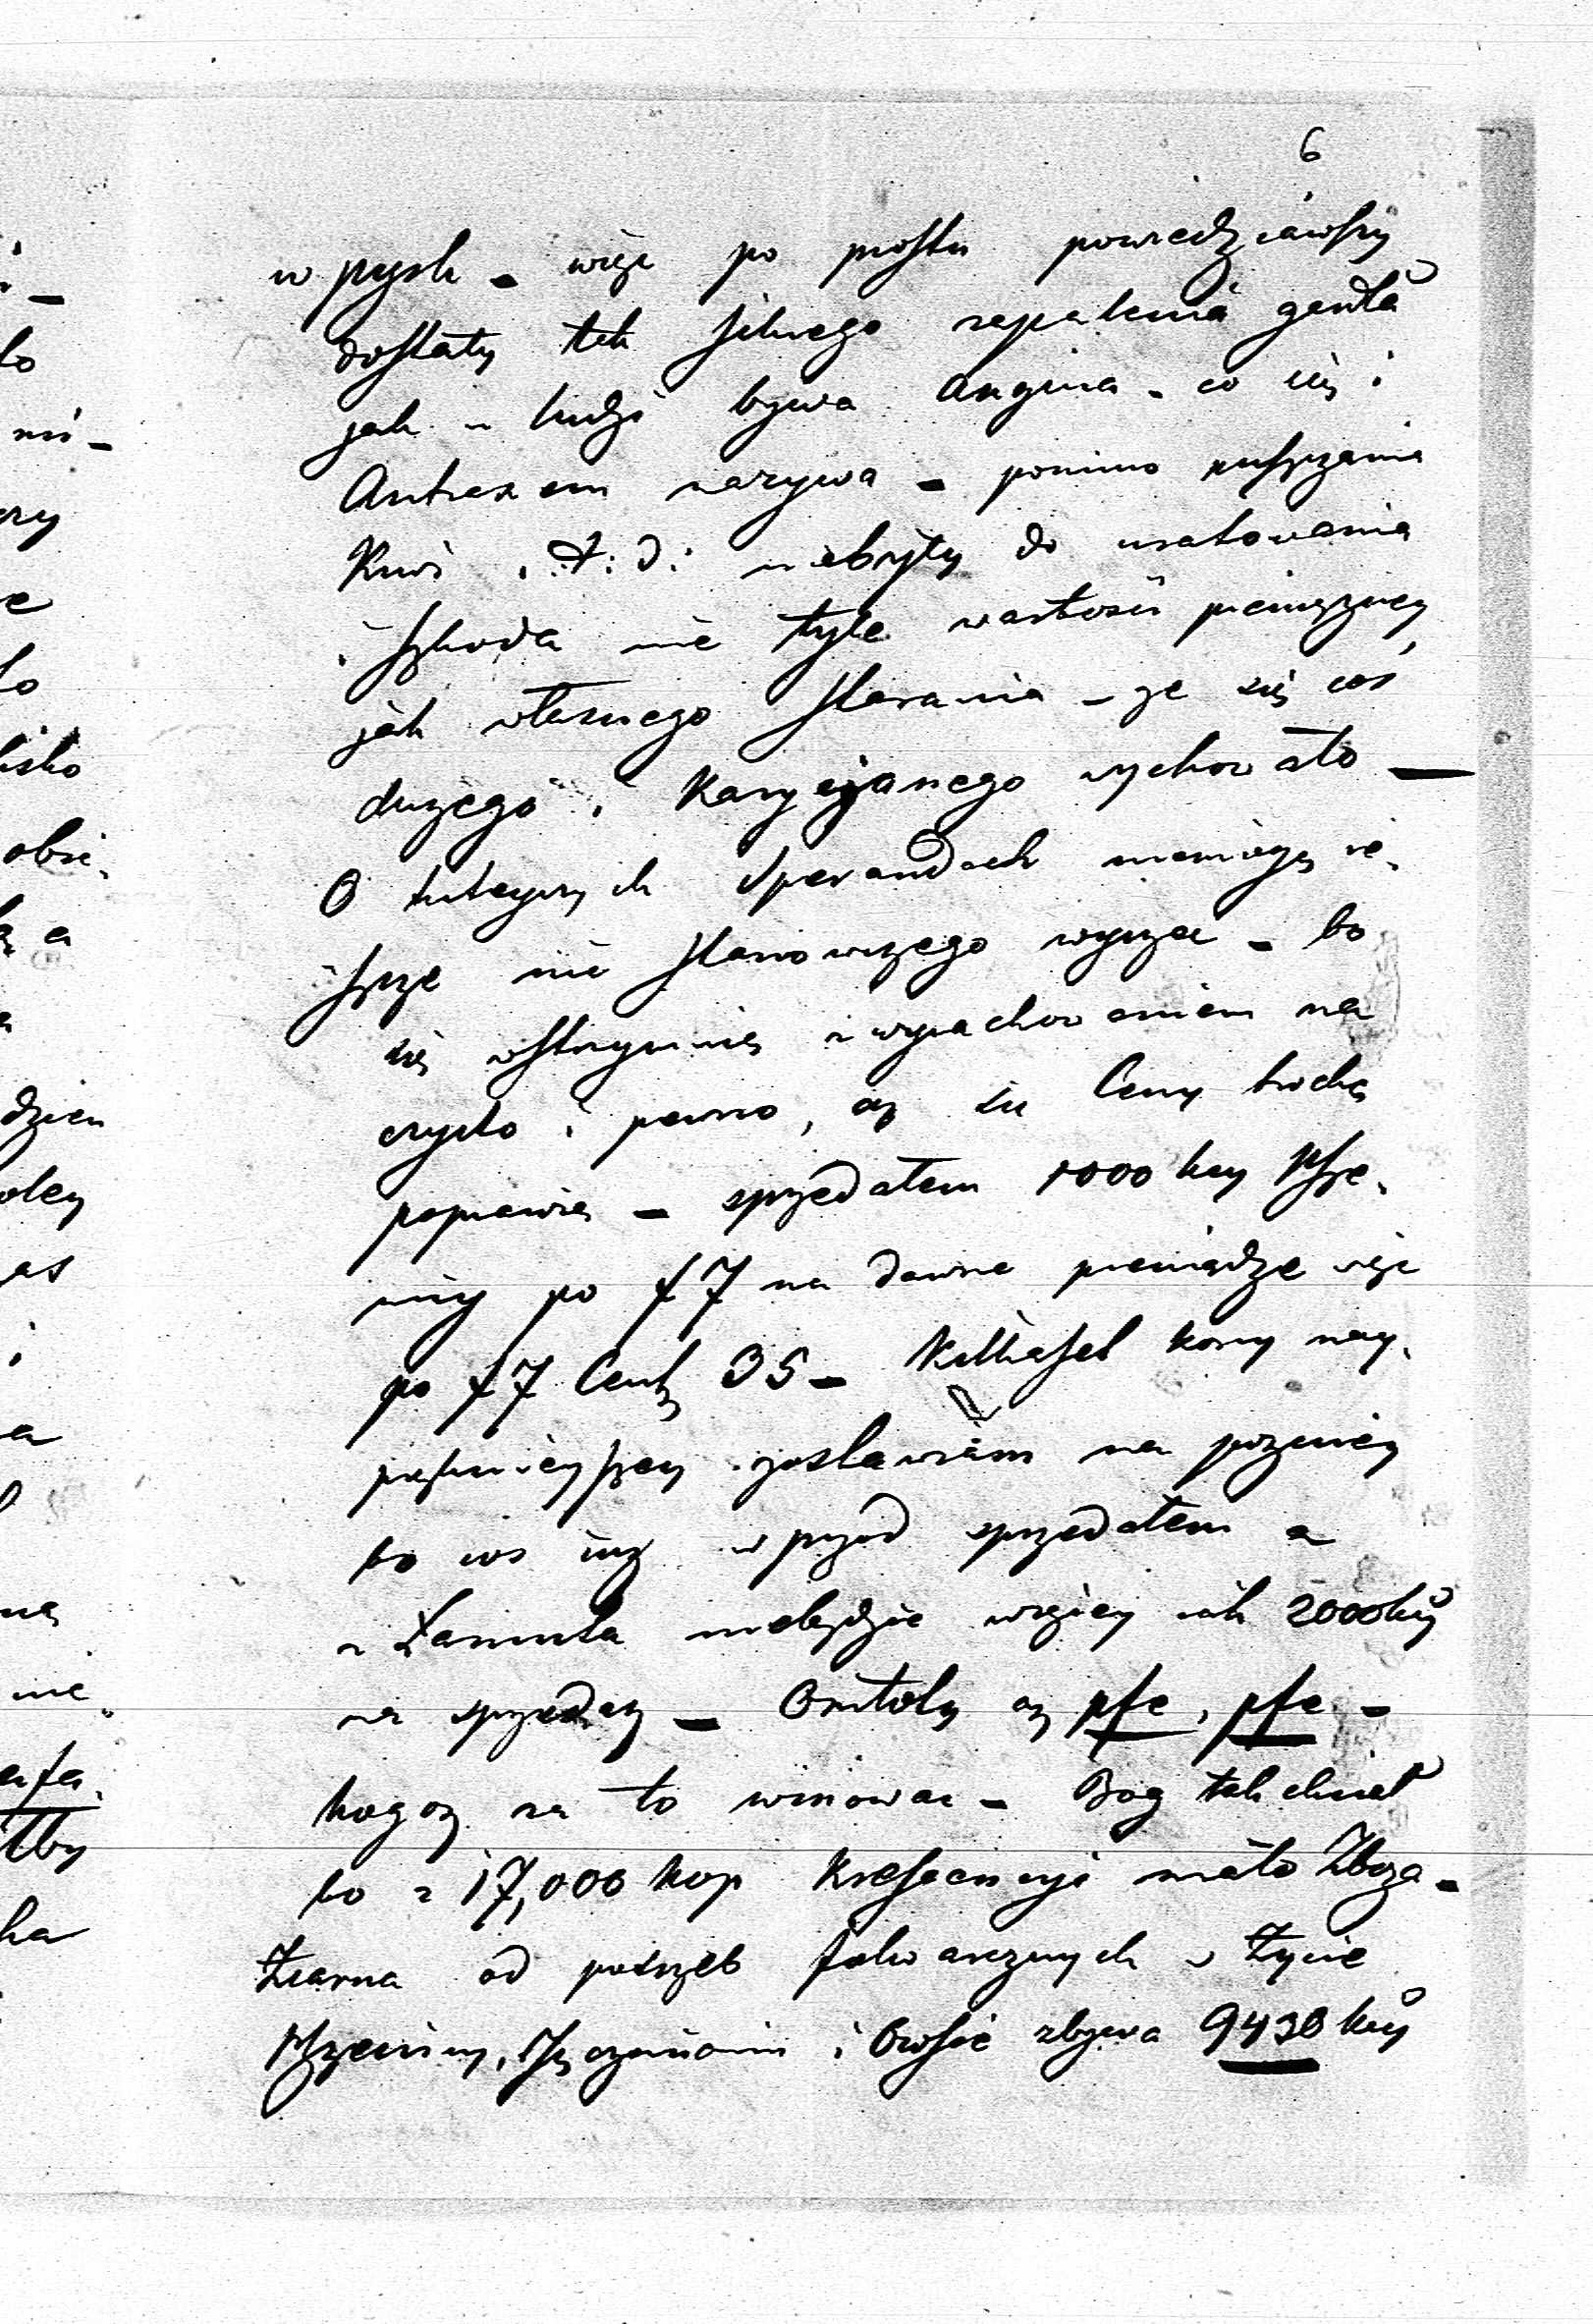 6
w pysk – więc po prostu powiedziawszy
dostały tak silnego zapalenia gardła
jak u ludzi bywa Angina – co się i
Antraxem nazywa – pomimo puszczania
Krwi i t: d: niebyły do uratowania
i szkoda nie tyle wartości pieniężney
jak własnego starania – że się coś
dużego i karygo wychowało —
O tuteyszych Sperandach niemogę ie-
szcze nic stanowczego wyrzec – bo
się wstrzymię z wyrachowaniem na
czysto i pewno, aż się Ceny trochę
poprawią – sprzedałem 1000 kcy Psze-
nicy po f 7 na dawne pieniądze więc
po f 7 Cent 35 – Kilkaset korcy nay-
pięknieyszey zostawiam na pozniey
bo coś już wprzód sprzedałem a
z Łańcuta niebędzie więcey iak 2000 kcy
na sprzedaż – Omłoty oy pfe, pfe –
kogoż za to winować – Bog tak chciał
bo z 17,000 kop Krescencyi mało Zboża –
Ziarna od potrzeb folwarcznych w Życie
Pszenicy, Jęczmieniu i Owsie zbywa 9430 kcy